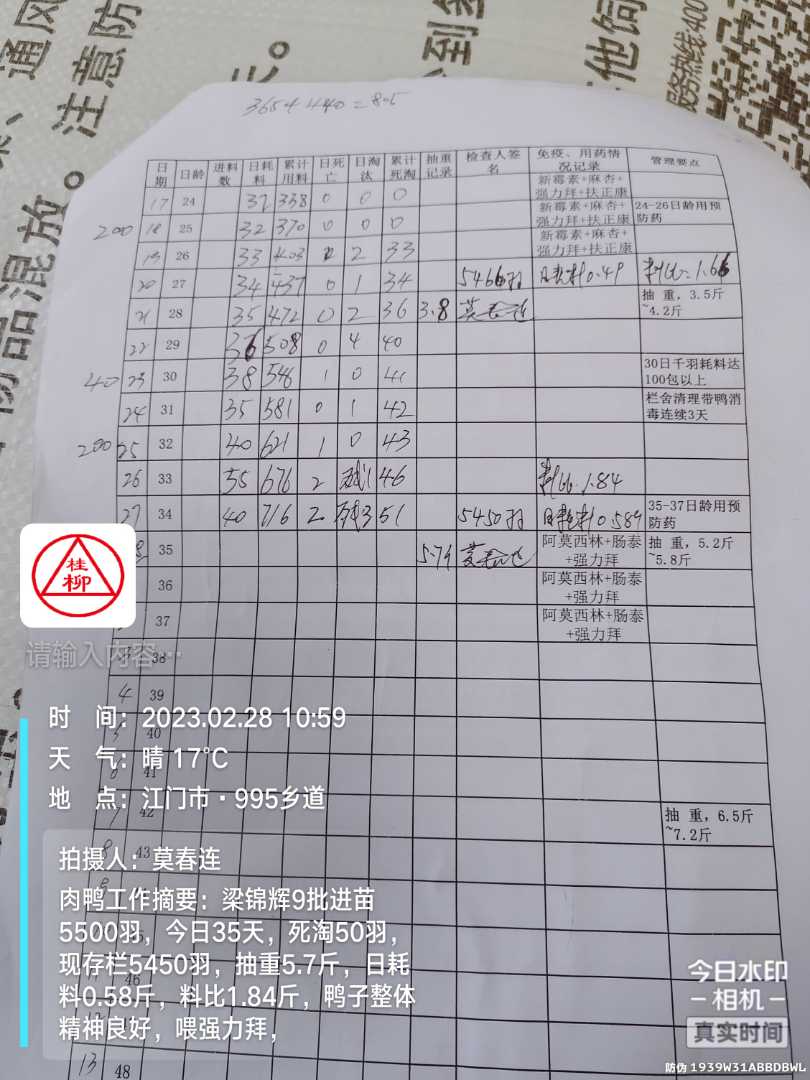 、通风
注意防
品混放。
365+440=805
他饲
服务热线:400
日期 日龄 进料数 日耗料 累计用料 日死亡 日淘汰 累计死淘 抽重记录 检查人签名 免疫、用药情况记录 管理要点
17 24 32 338 0 0 0 新霉素+麻杏+强力拜+扶正康
200 18 25 32 370 0 0 0 新霉素+麻杏+强力拜+扶正康 24-26日龄用预防药
19 26 33 403 2 33 新霉素+麻杏+强力拜+扶正康
20 27 34 437 0 1 34 5466羽 日耗料0.49 料比1.66
21 28 35 472 0 2 36 3.8 莫春连 抽 重,3.5斤~4.2斤
22 29 36 508 0 4 40
40 23 30 38 546 1 0 41 30日千羽耗料达100包以上
24 31 35 581 0 1 42 栏舍清理带鸭消毒连续3天
200 25 32 40 621 1 0 43
26 33 55 676 2 46 料比1.84
27 34 40 716 2 51 5450羽 日耗料0.589 35-37日龄用预防药
35 5.74 莫春连 阿莫西林+肠泰+强力拜 抽 重,5.2斤~5.8斤
36 阿莫西林+肠泰+强力拜
37 阿莫西林+肠泰+强力拜
38
4 39
40
41
42 抽 重,6.5斤~7.2斤
8 43
46
13 48
桂柳
请输入内容…
时 间:2023.02.28 10:59
天 气:晴 17℃
地 点:江门市·995乡道
拍摄人:莫春连
肉鸭工作摘要:梁锦辉9批进苗
5500羽,今日35天,死淘50羽,
现存栏5450羽,抽重5.7斤,日耗
料0.58斤,料比1.84斤,鸭子整体
精神良好,喂强力拜,
今日水印
-相机-
真实时间
防伪 1939W31ABBDBWL